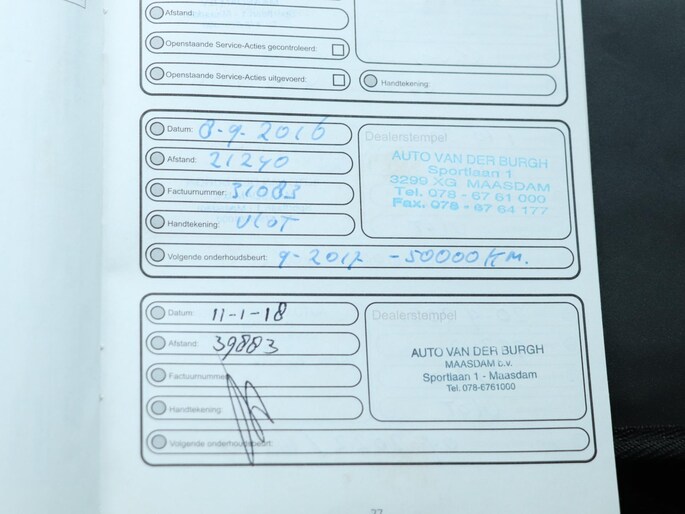 Afstand:
Openstaande Service-Acties gecontroleerd:
Openstaande Service-Acties uitgevoerd:
Handtekening:
Datum: 8-9-2016
Dealerstempel
Afstand: 21240
AUTO VAN DER BURGH
Sportlaan 1
3299 XG MAASDAM
Tel. 078 - 67 61 000
Fax. 078 - 67 64 177
Factuurnummer: 31083
Handtekening:
Volgende onderhoudsbeurt: 9-2017 -50000 KM.
Datum: 11-1-18
Dealerstempel
Afstand: 39883
AUTO VAN DER BURGH
MAASDAM b.v.
Sportlaan 1 - Maasdam
Tel. 078-6761000
Factuurnummer
Handtekening:
Volgende onderhoudsbeurt: